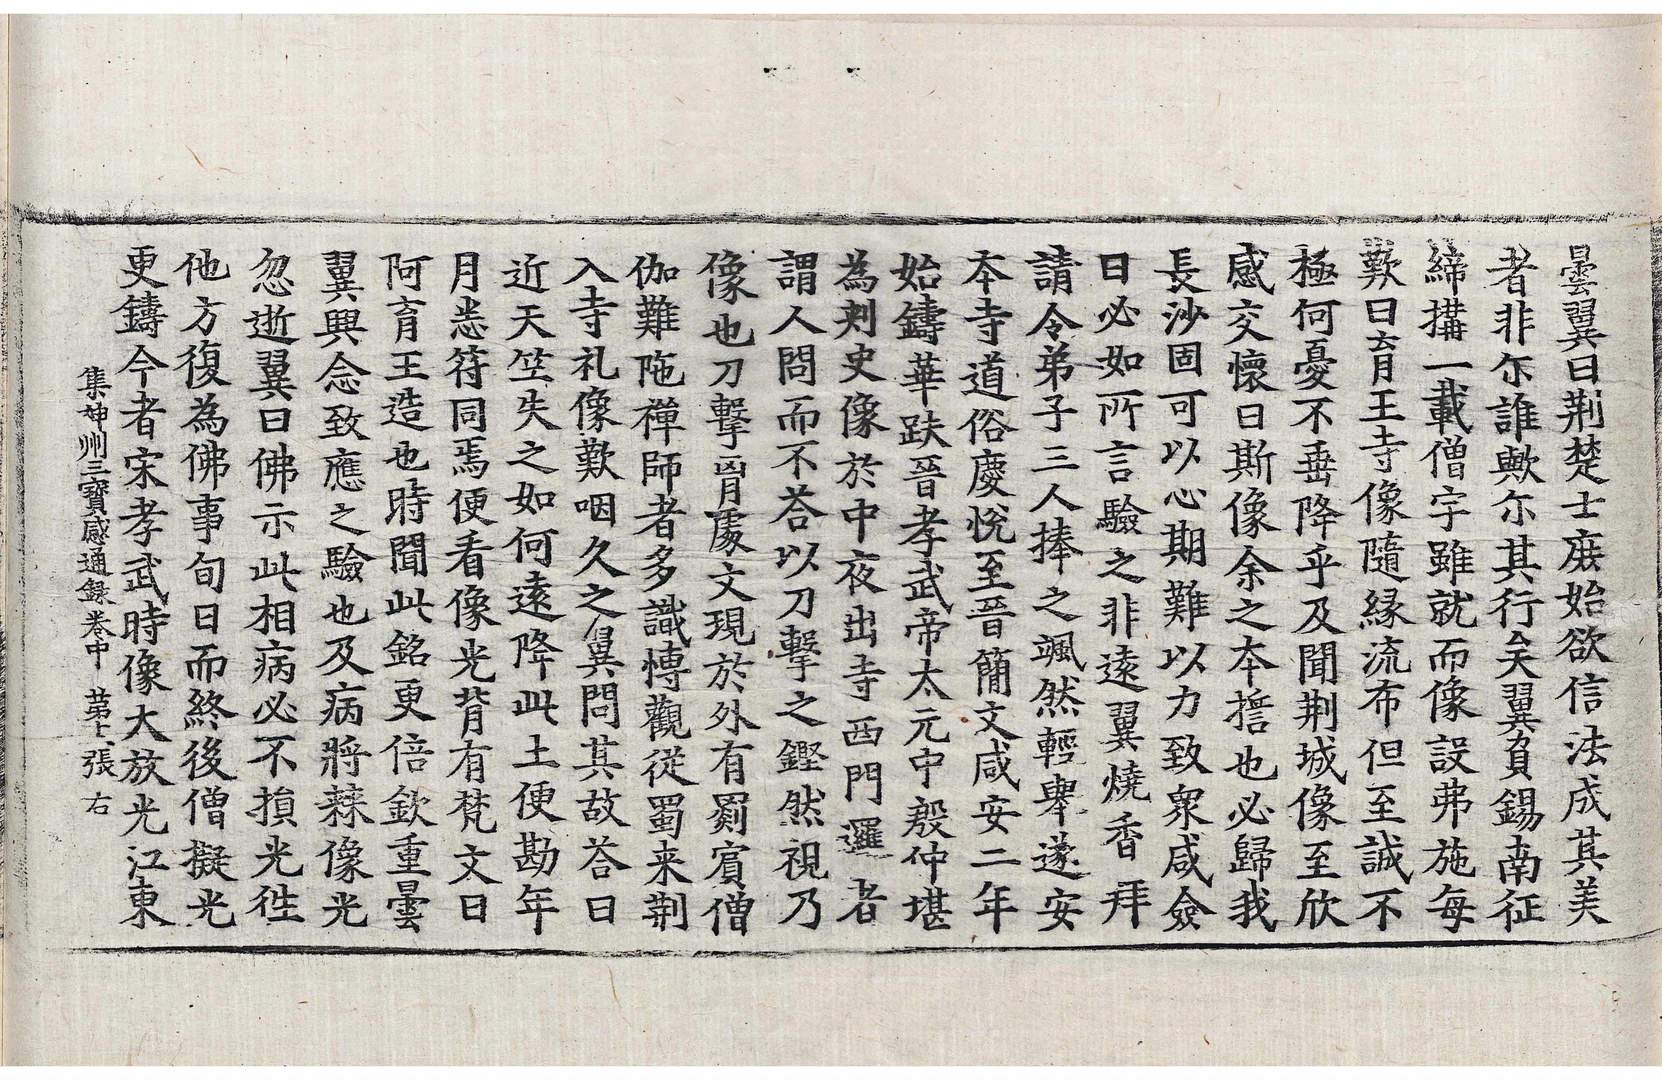 曇翼曰荆楚士庶始欲信法成其美
者非尓誰歟尓其行矣翼負錫南征
締搆一載僧宇雖就而像設弗施每
歎曰育王寺像隨緣流布但至誠不
極何憂不垂降乎及聞荆城像至欣
感交懷曰斯像余之本誓也必歸我
長沙固可以心期難以力致衆咸僉
曰必如所言驗之非遠翼燒香拜
請令弟子三人捧之颯然輕舉遂安
本寺道俗慶悅至晉簡文咸安二年
始鑄華趺晉孝武帝太元中殷仲堪
為刾史像於中夜出寺西門邏者
謂人問而不荅以刀擊之鏗然視乃
像也刀擊胷處文現於外有罽賓僧
伽難陁禪師者多識愽觀從蜀来荆
入寺礼像歎咽久之翼問其故荅曰
近天竺失之如何遠降此土便勘年
月悉符同焉便看像光背有梵文曰
阿育王造也時聞此銘更倍欽重曇
翼興念致應之驗也及病將𣨼像光
忽逝翼曰佛示此相病必不損光徃
他方復為佛事旬日而終後僧擬光
更鑄今者宋孝武時像大放光江東
集神州三寶感通錄卷中 第十六張 右